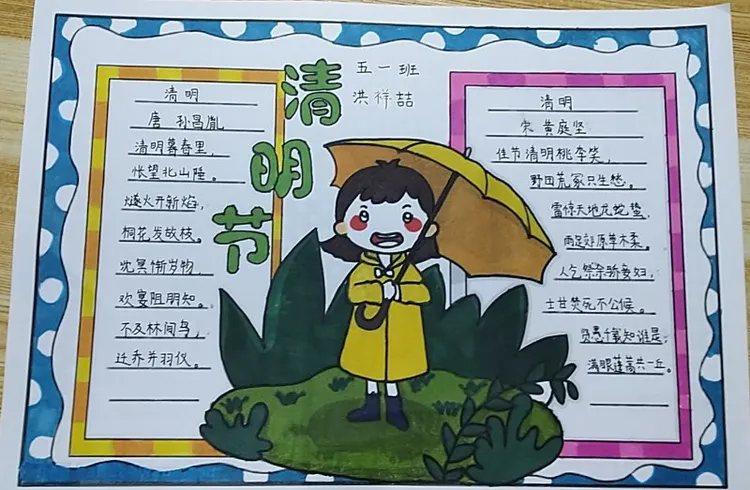 清明节
五一班
洪祥喆
清明
唐 孙昌胤
清明暮春里，
怅望北山陲。
燧火开新焰，
桐花发故枝。
沈冥惭岁物，
欢宴阻朋知。
不及林间鸟，
迁乔并羽仪。
清明
宋 黄庭坚
佳节清明桃李笑，
野田荒冢只生愁。
雷惊天地龙蛇蛰，
雨足郊原草木柔。
人乞祭余骄妾妇，
士甘焚死不公候。
贤愚千载知谁是，
满眼蓬蒿共一丘。